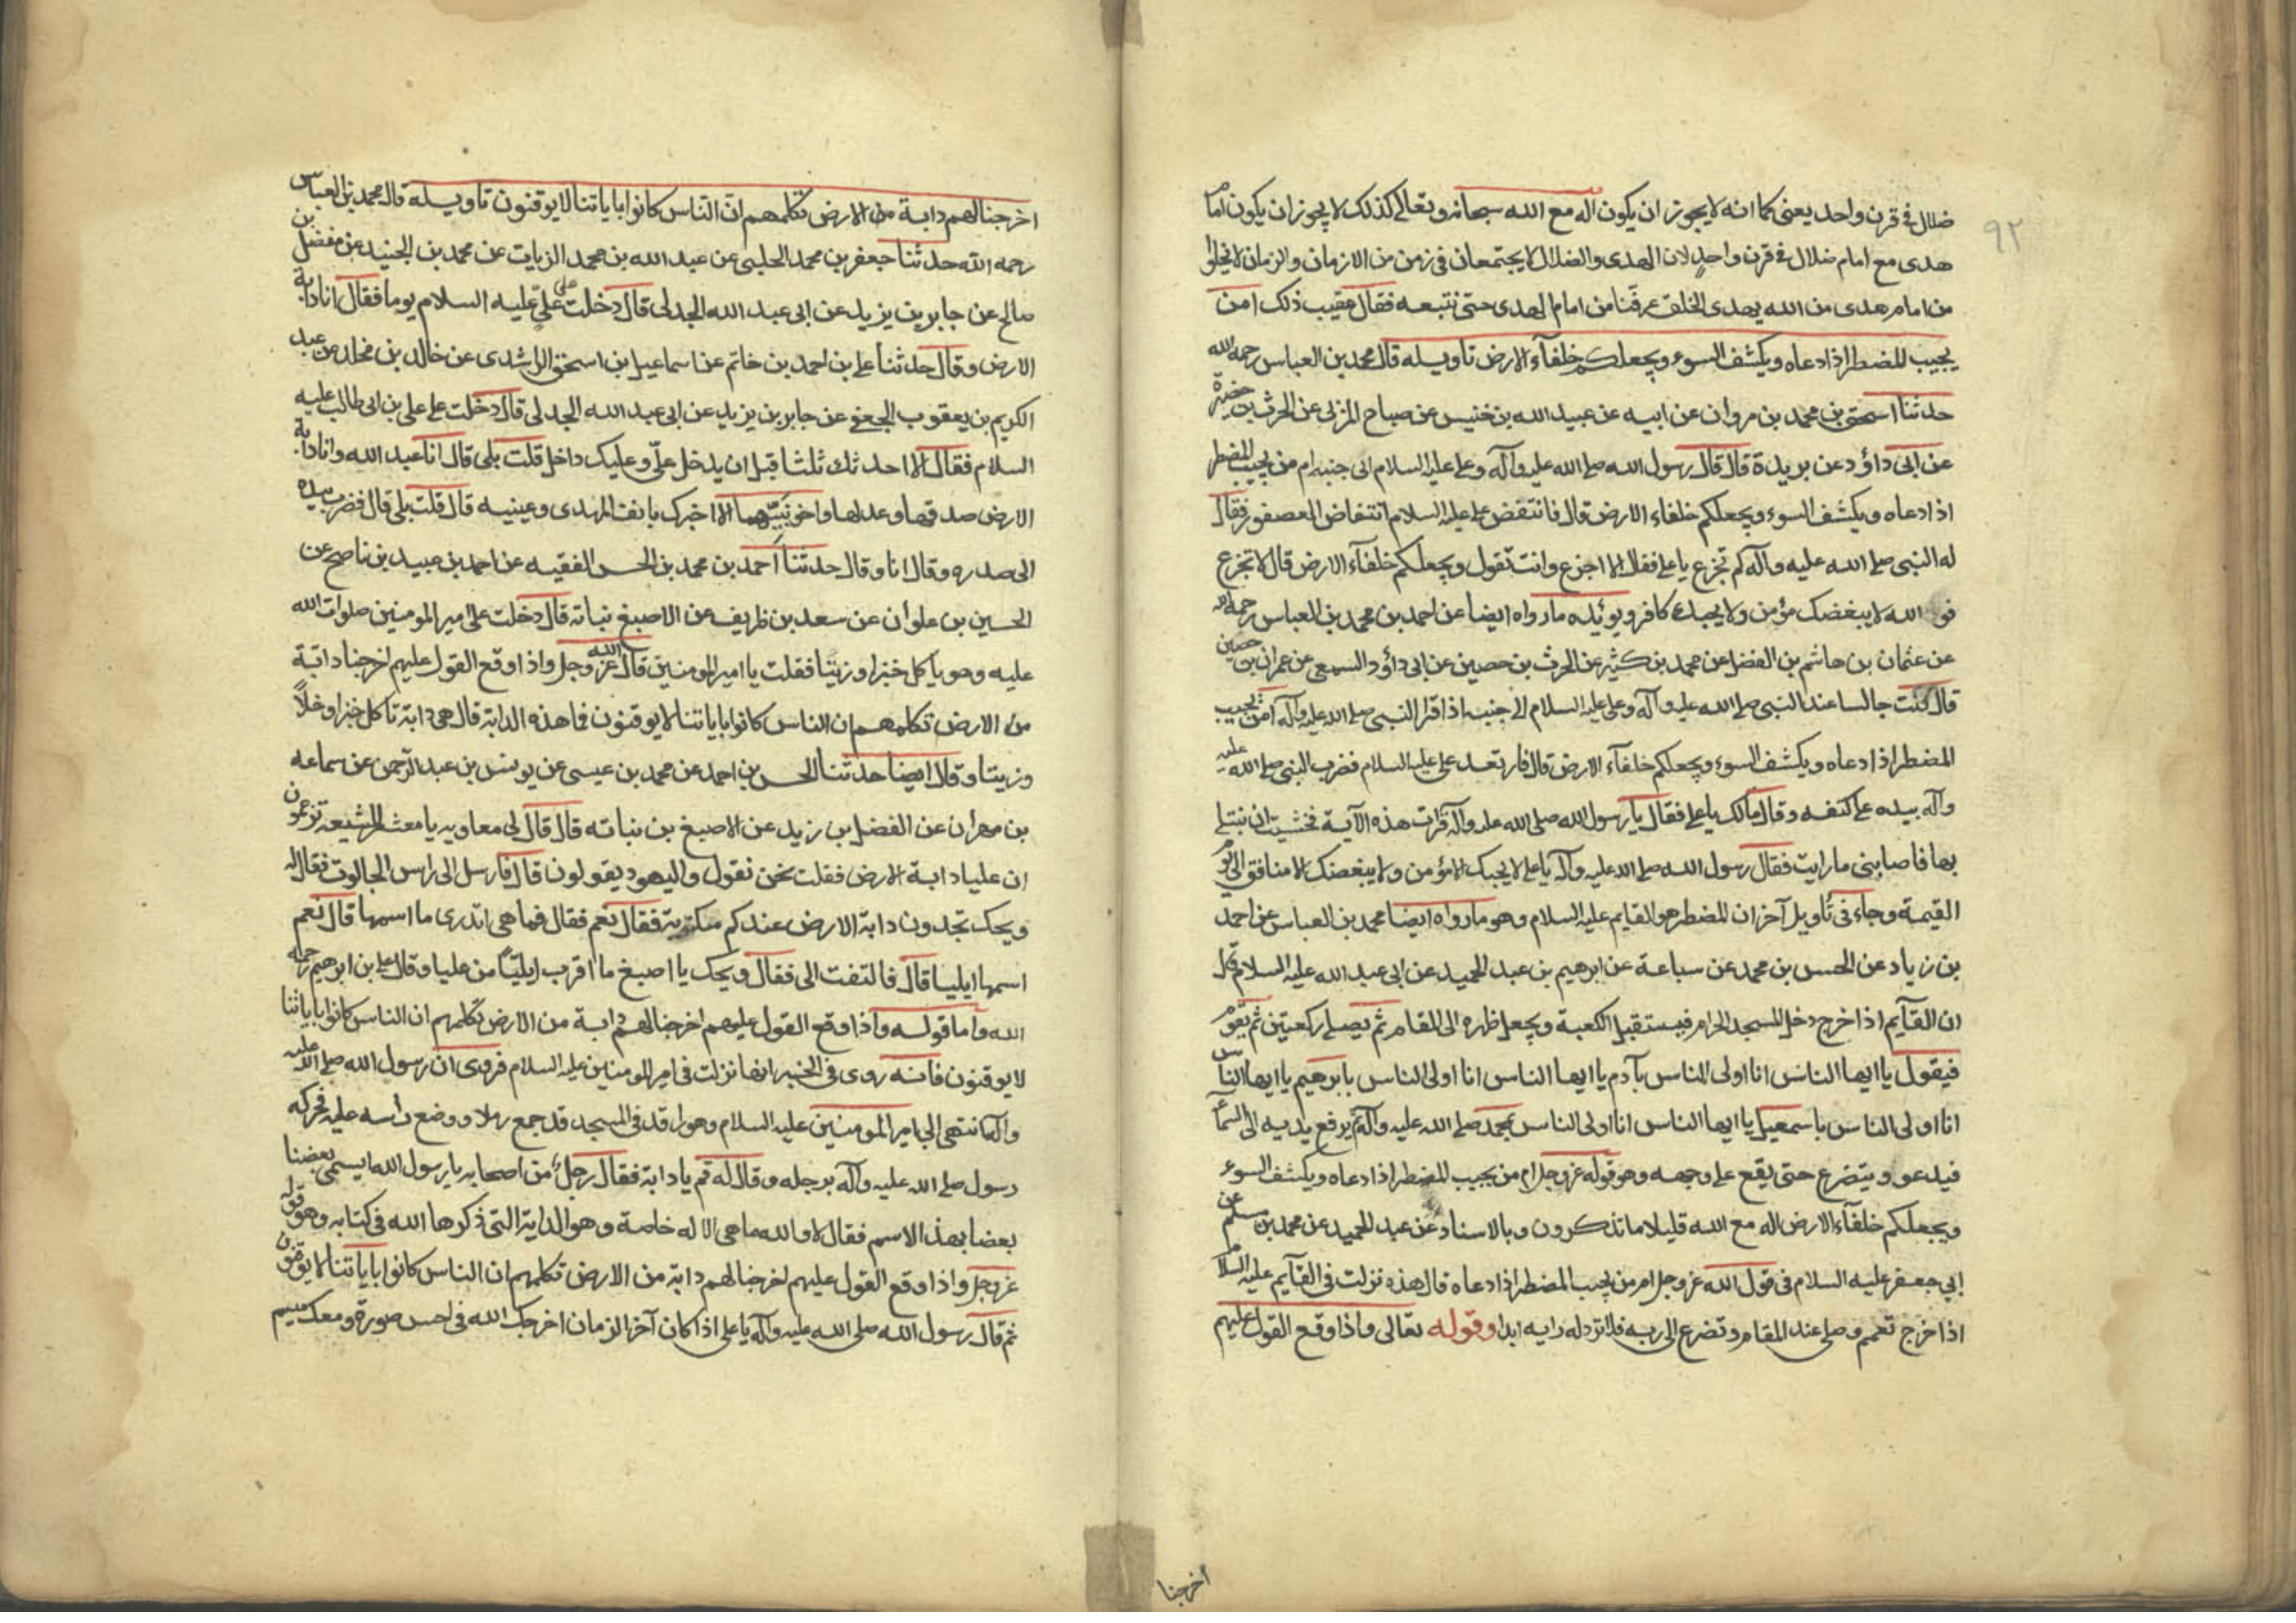 ٩٢
ضلال في قرن واحد يعنى كما انه لا يجوز ان يكون اله مع الله سبحانه وتعالى كذلك لا يجوز ان يكون امام
هدى مع امام ضلال في قرن واحد لان الهدى والضلال لا يجتمعان في زمن من الازمان والزمان لا يخلوا
من امام هدى من الله يهدى الخلق عرفنا من امام الهدى حتى نتبعه فقال عقيب ذلك امن
يجيب المضطر اذا دعاه ويكشف السوء ويجعلكم خلفآء الارض تاويله قال محمد بن العباس رحمه الله
حدثنا اسحق بن محمد بن مروان عن ابيه عن عبيد الله بن خنيس عن صباح المزنى عن الحرث بن حضيرة
عن ابى داؤد عن بريدة قال قال رسول الله صلى الله عليه وآله وعلى عليه السلام الى جنبه ام من يجيب المضطر
اذا دعاه ويكشف السوء ويجعلكم خلفاء الارض قال فانتقض على عليه السلام انتفاض العصفور فقال
له النبى صلى الله عليه وآله كم تجزع يا على فقال الا اجزع وانت تقول ويجعلكم خلفآء الارض قال لا تجزع
فو الله لا يبغضك مؤمن ولا يحبك كافر ويوئيده ما رواه ايضا عن احمد بن محمد بن العباس رحمه الله
عن عثمان بن هاشم بن الفضل عن محمد بن كثير عن الحرث بن حصين عن ابى داؤد السمعى عن عمران بن حصين
قال كنت جالسا عند النبى صلى الله عليه وآله وعلى عليه السلام الى جنبه اذ اقرا النبى صلى الله عليه وآله امن يجيب
المضطر اذا دعاه ويكشف السوء ويجعلكم خلفآء الارض قال فارتعد على عليه السلام فضرب النبى صلى الله عليه
وآله بيده على كتفه وقال مالك يا على فقال يا رسول الله صلى الله عليه وآله قرات هذه الآية فخشيت ان نبتلى
بها فاصابنى ما رايت فقال رسول الله صلى الله عليه وآله يا على لا يحبك الا مؤمن ولا يبغضك الا منافق الى يوم
القيمة وجاء فى تاويل آخر ان المضطر هو القايم عليه السلام وهو ما رواه ايضا محمد بن العباس عن احمد
بن زياد عن الحسن بن محمد عن سباعة عن ابرهيم بن عبد الحميد عن ابى عبد الله عليه السلام قال
ان القآيم اذا خرج دخل المسجد الحرام فيستقبل الكعبة ويجعل ظهره الى المقام ثم يصلى ركعتين ثم يقوم
فيقول يا ايها الناس انا اولى الناس بآدم يا ايها الناس انا اولى الناس بابرهيم يا ايها الناس
انا اولى الناس باسمعيل يا ايها الناس انا اولى الناس بمحمد صلى الله عليه وآله ثم يرفع يديه الى السمآ
فيدعو ويتضرع حتى يقع على وجهه وهو قوله عز وجل ام من يجيب المضطر اذا دعاه ويكشف السوء
ويجعلكم خلفآء الارض اله مع الله قليلا ما تذكرون وبالاسناد عن عبد الحميد عن محمد بن مسلم عن
ابى جعفر عليه السلام فى قول الله عز وجل ام من يجيب المضطر اذا دعاه قال هذه نزلت فى القآيم عليه السلام
اذا خرج تعمم وصلى عند المقام وتضرع الى ربه فلا ترد له رايه ابدا وقوله تعالى واذا وقع القول عليهم
اخرجنا
اخرجنا لهم دابة من الارض تكلمهم ان الناس كانوا باياتنا لا يوقنون تاويله قال محمد بن العباس
رحمه الله حدثنا جعفر بن محمد الحلبى عن عبد الله بن محمد الزيات عن محمد بن الجنيد عن مفضل بن
صالح عن جابر بن يزيد عن ابى عبد الله الجدلى قال دخلت على على عليه السلام يوما فقال انا دابة
الارض وقال حدثنا على بن احمد بن خاتم عن اسماعيل بن اسحق الراشدى عن خالد بن مخلد عن عبد
الكريم بن يعقوب الجعفى عن جابر بن يزيد عن ابى عبد الله الجدلى قال دخلت على على بن ابى طالب عليه
السلام فقال الا احدثك ثلثا قبل ان يدخل علىّ وعليك داخل قلت بلى قال انا عبد الله وانا دابة
الارض صدقها وعدلها واخو نبيّهما الا اخبرك بانف المهدى وعينيه قال قلت بلى قال فضرب بيده
الى صدره وقال انا وقال حدثنا احمد بن محمد بن الحسن الفقيه عن احمد بن عبيد بن ناصح عن
الحسين بن علوان عن سعد بن ظريف عن الاصبغ نباته قال دخلت على امير المومنين صلوات الله
عليه وهو ياكل خبزا وزيتا فقلت يا امير المومنين قال الله عز وجل واذا وقع القول عليهم اخرجنا دابة
من الارض تكلمهم ان الناس كانوا باياتنا لا يوقنون فما هذه الدابة قال هى دابة تاكل خبزا وخلاً
وزيتا وقال ايضا حدثنا الحسن بن احمد عن محمد بن عيسى عن يونس بن عبد الرحمن عن سماعه
بن مهران عن الفضل بن زيد عن الاصبغ بن نباته قال قال لى معاويه يا معشر الشيعة تزعمون
ان عليا دابة الارض فقلت نحن نقول واليهود يقولون قال فارسل الى راس الجالوت فقال له
ويحك تجدون دابة الارض عندكم مكتوبة فقال نعم فقال فما هى اتدرى ما اسمها قال نعم
اسمها ايليا قال فالتفت الى فقال ويحك يا اصبغ ما اقرب ايلياً من عليا وقال على بن ابرهيم رحمه
الله واما قوله واذا وقع القول عليهم اخرجنا لهم دابة من الارض تكلمهم ان الناس كانوا باياتنا
لا يوقنون فانه روى فى الخبر انها نزلت فى امير المومنين عليه السلام فروى ان رسول الله صلى الله عليه
وآله انتهى الى امير المومنين عليه السلام وهو راقد فى المسجد قد جمع رملا ووضع راسه عليه فحركه
رسول صلى الله عليه وآله برجله وقال له قم يا دابة فقال رجل من اصحابه يا رسول الله ايسمى بعضنا
بعضا بهذ الاسم فقال لا والله ما هى الا له خاصة وهو الداية التى ذكرها الله فى كتابه وهو قوله
عز وجل واذا وقع القول عليهم اخرجنا لهم دابة من الارض تكلمهم ان الناس كانوا باياتنا لا يوقنون
ثم قال رسول الله صلى الله عليه وآله يا على اذا كان آخر الزمان اخرجك الله فى احسن صورة ومعك ميسم